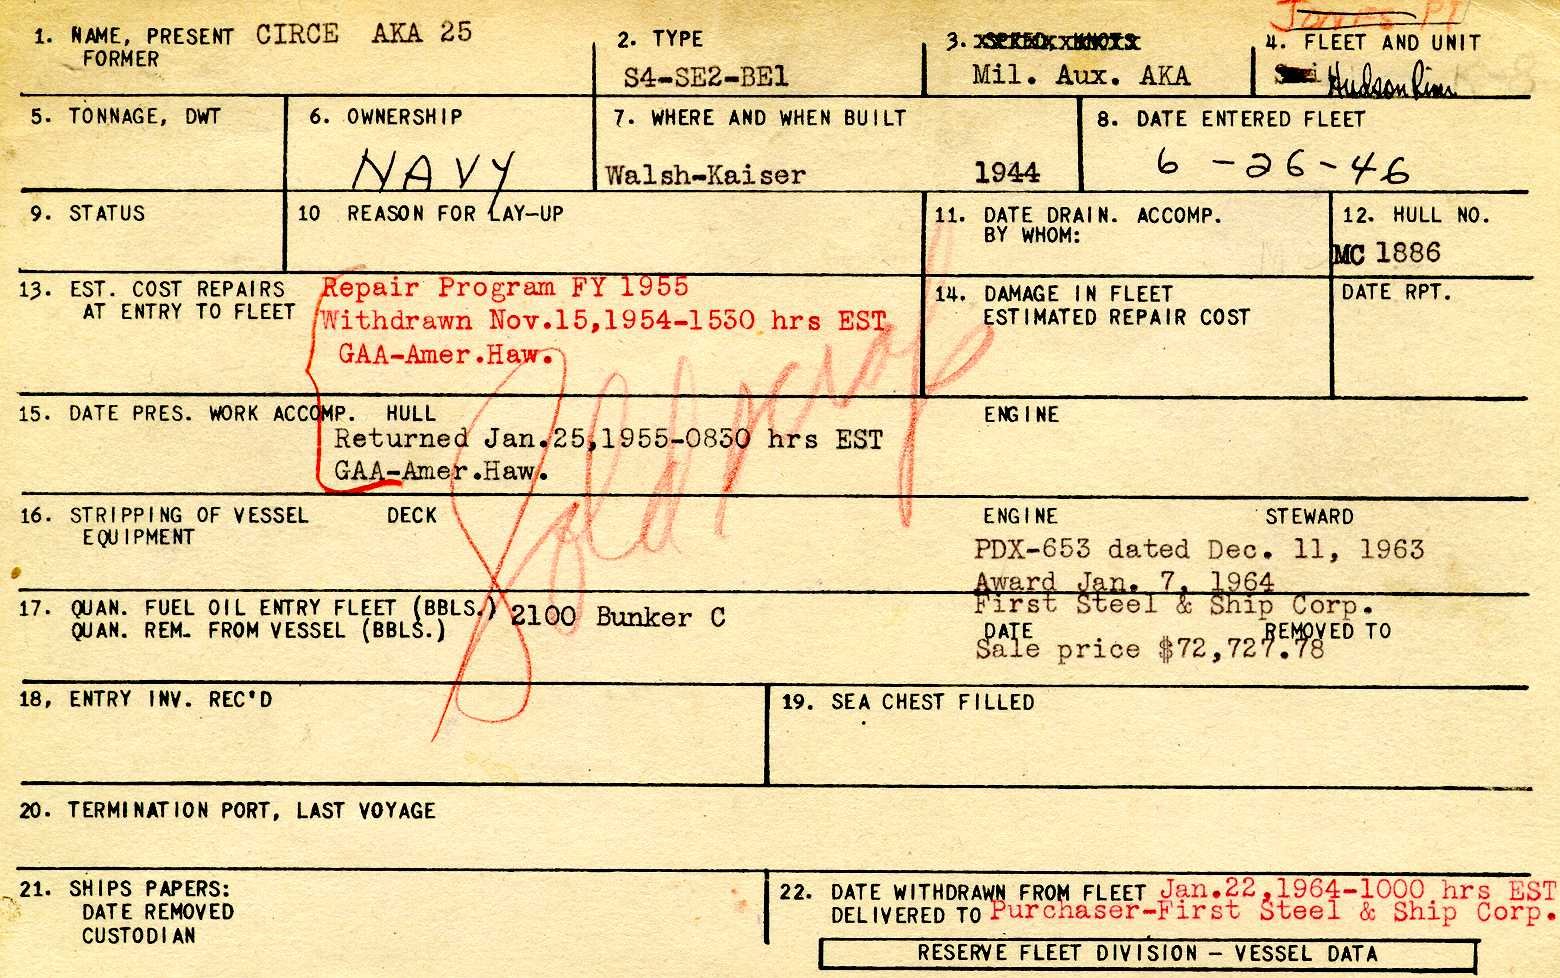 Jones Pt
1. NAME, PRESENT CIRCE AKA 25
FORMER
2. TYPE
S4-SE2-BE1
3. SPEED, KNOTS
Mil. Aux. AKA
4. FLEET AND UNIT
Hudson River
5. TONNAGE, DWT
6. OWNERSHIP
NAVY
7. WHERE AND WHEN BUILT
Walsh-Kaiser 1944
8. DATE ENTERED FLEET
6-26-46
9. STATUS
10 REASON FOR LAY-UP
11. DATE DRAIN. ACCOMP.
BY WHOM:
12. HULL NO.
MC 1886
13. EST. COST REPAIRS
AT ENTRY TO FLEET
Repair Program FY 1955
Withdrawn Nov.15,1954-1530 hrs EST
GAA-Amer.Haw.
14. DAMAGE IN FLEET
ESTIMATED REPAIR COST
DATE RPT.
15. DATE PRES. WORK ACCOMP. HULL
ENGINE
Returned Jan.25,1955-0830 hrs EST
GAA-Amer.Haw.
Sold scrap
16. STRIPPING OF VESSEL DECK
EQUIPMENT
ENGINE STEWARD
PDX-653 dated Dec. 11, 1963
Award Jan. 7, 1964
First Steel & Ship Corp.
17. QUAN. FUEL OIL ENTRY FLEET (BBLS.) 2100 Bunker C
QUAN. REM. FROM VESSEL (BBLS.)
DATE REMOVED TO
Sale price $72,727.78
18, ENTRY INV. REC'D
19. SEA CHEST FILLED
20. TERMINATION PORT, LAST VOYAGE
21. SHIPS PAPERS:
DATE REMOVED
CUSTODIAN
22. DATE WITHDRAWN FROM FLEET Jan.22,1964-1000 hrs EST
DELIVERED TO Purchaser-First Steel & Ship Corp.
RESERVE FLEET DIVISION - VESSEL DATA